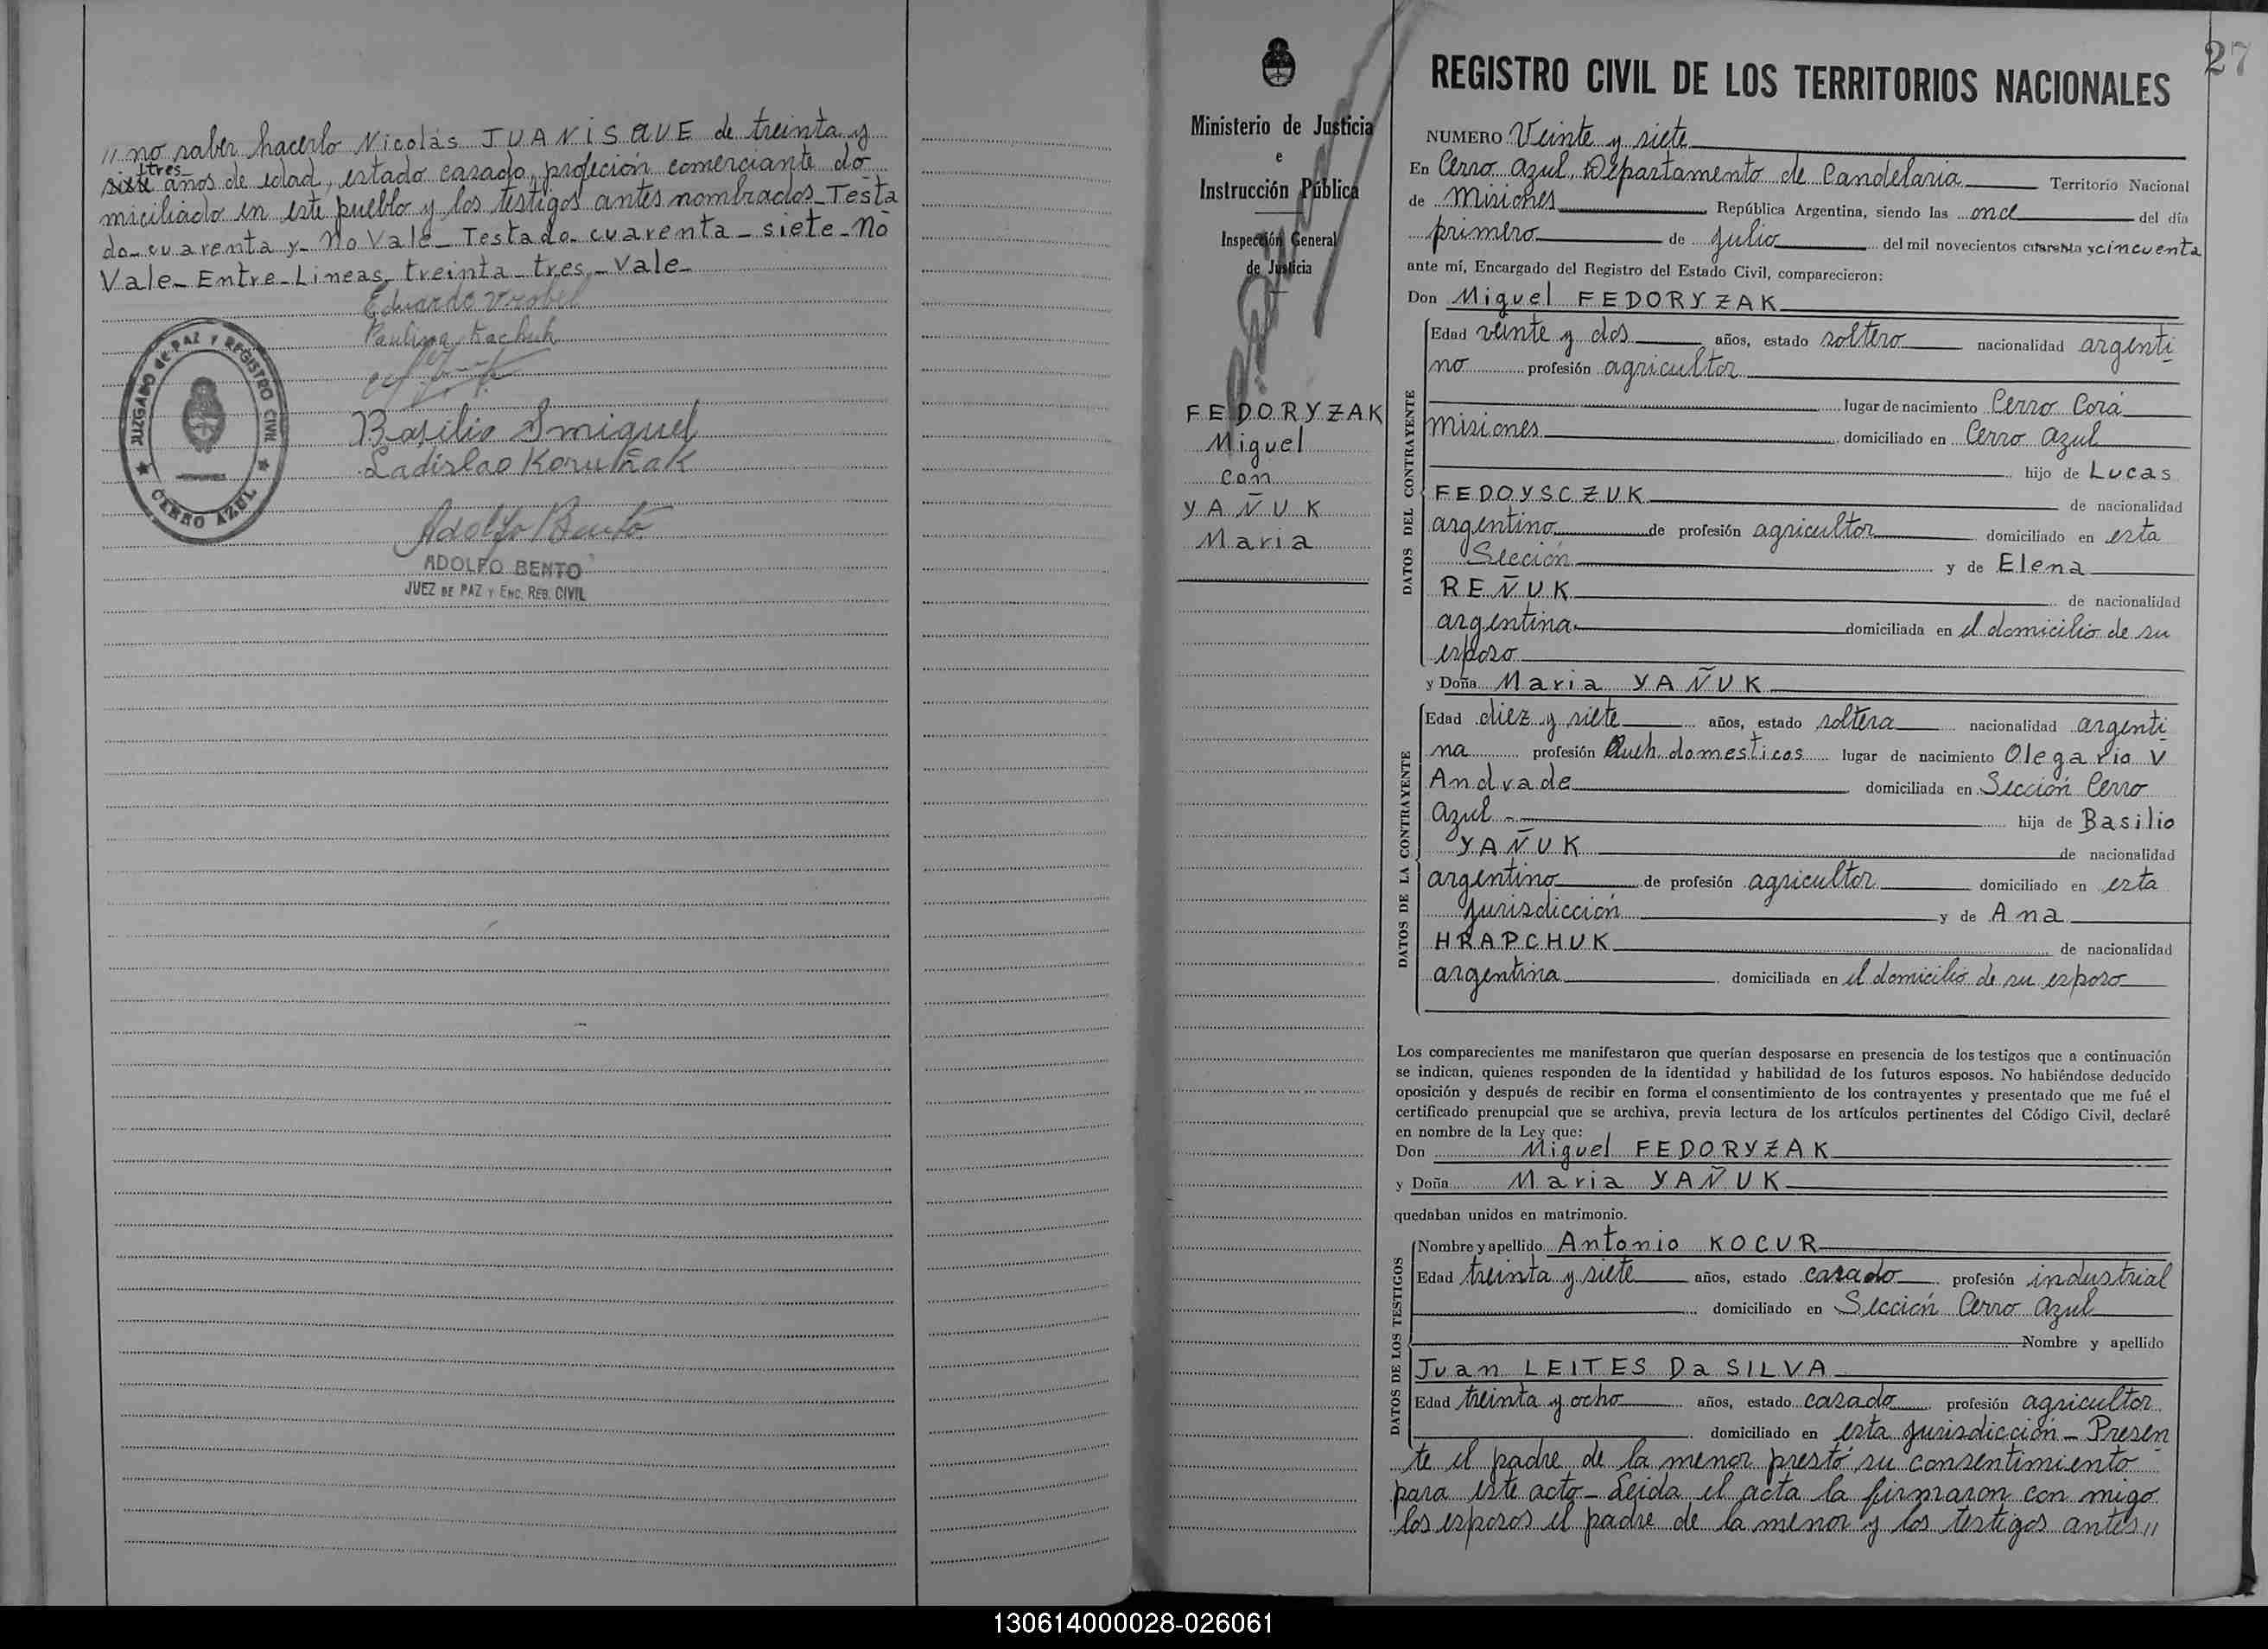 // no saber hacerlo Nicolás JUANISQUE de treinta y
tres
siete años de edad, estado casado, profeción comerciante do
miciliado en este pueblo y los testigos antes nombrados_Testa
do_cuarenta y_ No Vale_ Testado_cuarenta_siete_No
Vale_Entre_Lineas, treinta_tres,_Vale_
Eduardo Vrobel
Paulina Kachuk
Basilio Smiguel
Ladislao Koruñak
Adolfo Bento
ADOLFO BENTO
JUEZ DE PAZ Y ENC. REG. CIVIL
JUZGADO DE PAZ Y REGISTRO CIVIL
CERRO AZUL
27
Ministerio de Justicia
e
Instrucción Pública
Inspección General
de Justicia
FEDORYZAK
Miguel
con
YAÑUK
Maria
REGISTRO CIVIL DE LOS TERRITORIOS NACIONALES
NUMERO Veinte y siete
En Cerro Azul, Departamento de Candelaria Territorio Nacional
de Misiones República Argentina, siendo las once del día
primero de Julio del mil novecientos cuarenta y cincuenta
ante mí, Encargado del Registro del Estado Civil, comparecieron:
Don Miguel FEDORYZAK
DATOS DEL CONTRAYENTE
Edad veinte y dos años, estado soltero nacionalidad argenti
no profesión agricultor
lugar de nacimiento Cerro Corá
Misiones domiciliado en Cerro Azul
hijo de Lucas
FEDOYSCZUK de nacionalidad
argentino de profesión agricultor domiciliado en esta
Sección y de Elena
REÑUK de nacionalidad
argentina domiciliada en el domicilio de su
esposo
y Doña Maria YAÑUK
DATOS DE LA CONTRAYENTE
Edad diez y siete años, estado soltera nacionalidad argenti
na profesión Queh. domesticos lugar de nacimiento Olegario V
Andrade domiciliada en Sección Cerro
Azul hija de Basilio
YAÑUK de nacionalidad
argentino de profesión agricultor domiciliado en esta
Jurisdicción y de Ana
HRAPCHUK de nacionalidad
argentina domiciliada en el domicilio de su esposo
Los comparecientes me manifestaron que querían desposarse en presencia de los testigos que a continuación
se indican, quienes responden de la identidad y habilidad de los futuros esposos. No habiéndose deducido
oposición y después de recibir en forma el consentimiento de los contrayentes y presentado que me fué el
certificado prenupcial que se archiva, previa lectura de los artículos pertinentes del Código Civil, declaré
en nombre de la Ley que:
Don Miguel FEDORYZAK
y Doña Maria YAÑUK
quedaban unidos en matrimonio.
DATOS DE LOS TESTIGOS
Nombre y apellido Antonio KOCUR
Edad treinta y siete años, estado casado profesión industrial
domiciliado en Sección Cerro Azul
Nombre y apellido
Juan LEITES Da SILVA
Edad treinta y ocho años, estado casado profesión agricultor
domiciliado en esta Jurisdicción_ Presen
te el padre de la menor prestó su consentimiento
para este acto_ Leida el acta la firmaron con migo
los esposos el padre de la menor y los testigos antes //
130614000028-026061